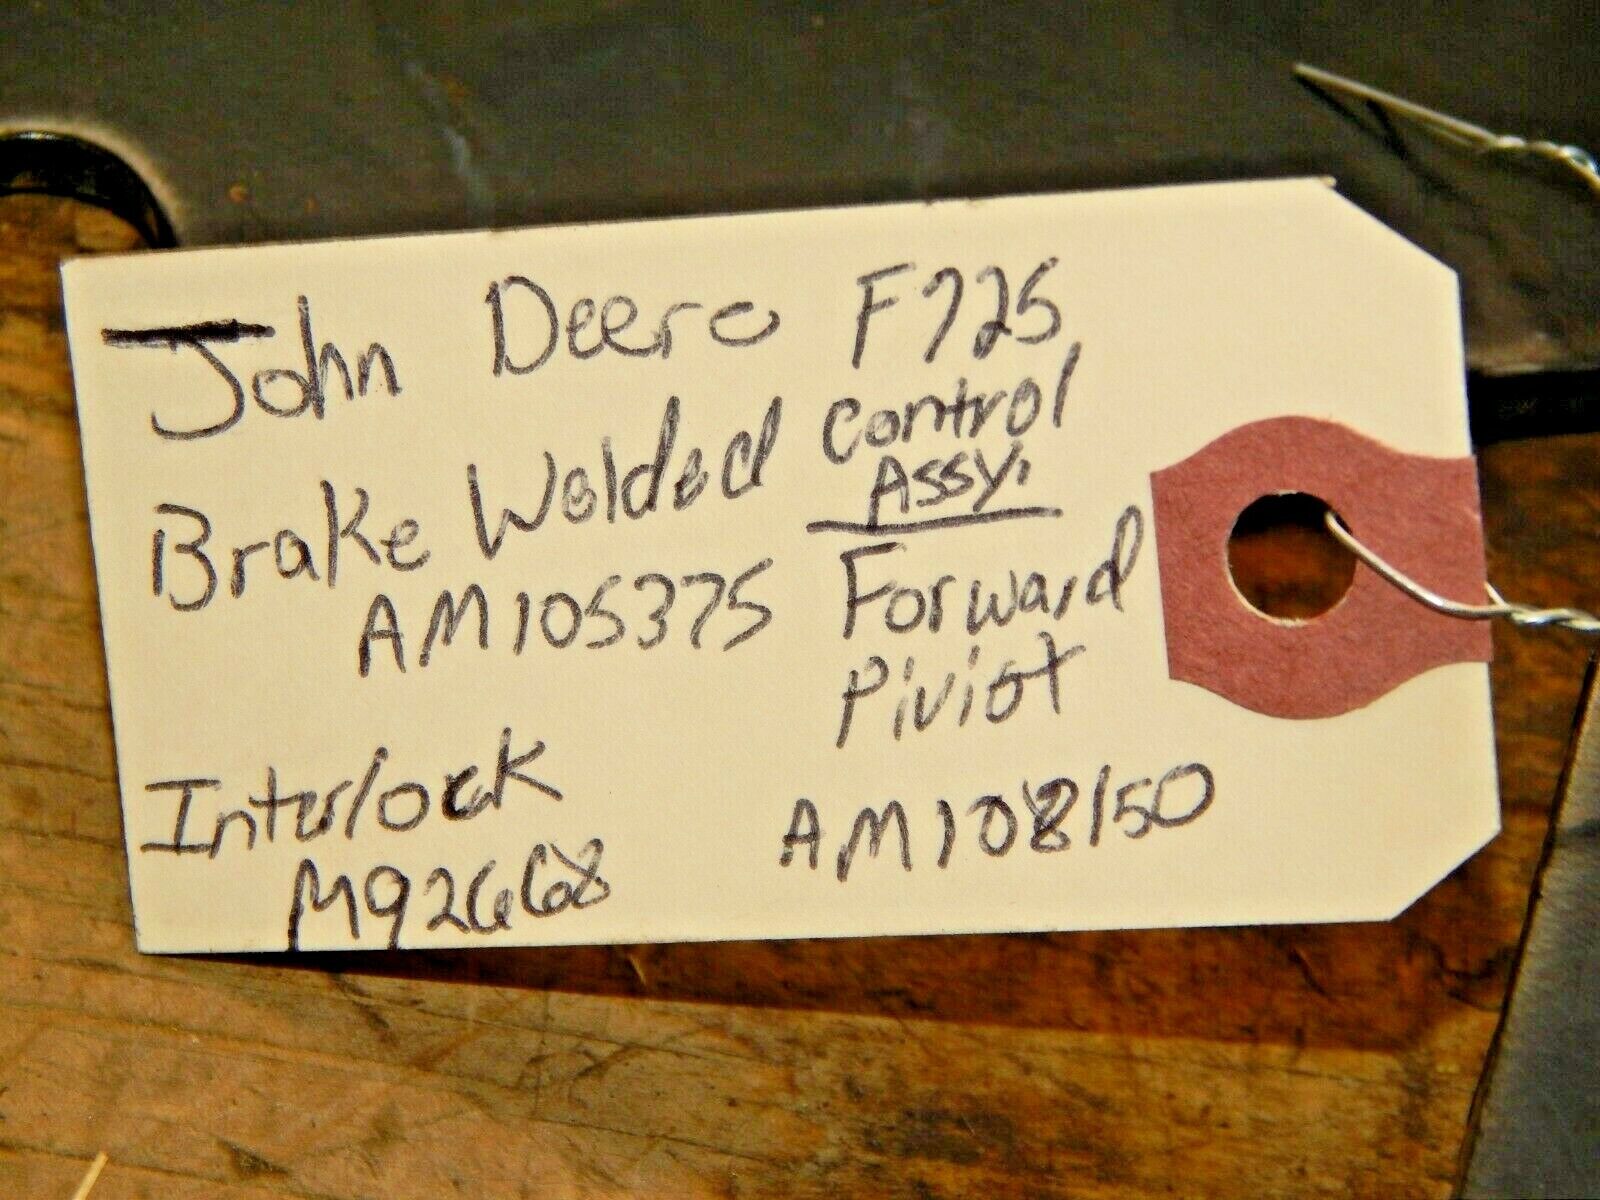 John Deere F725
Brake Welded Control
Assy.
AM105375 Forward
Piviot
Interlock
M92668 AM108150